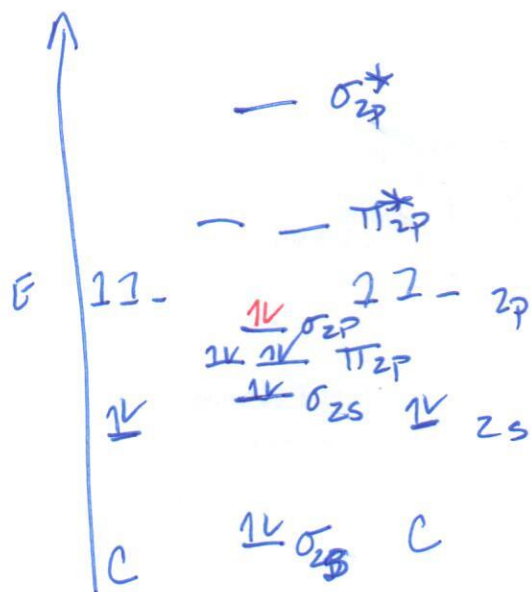 σ2p*
π2p*
E 11- 11- 2p
1V σ2p
1V 1V π2p
1V σ2s
1V 1V 2s
1V σ2
C C